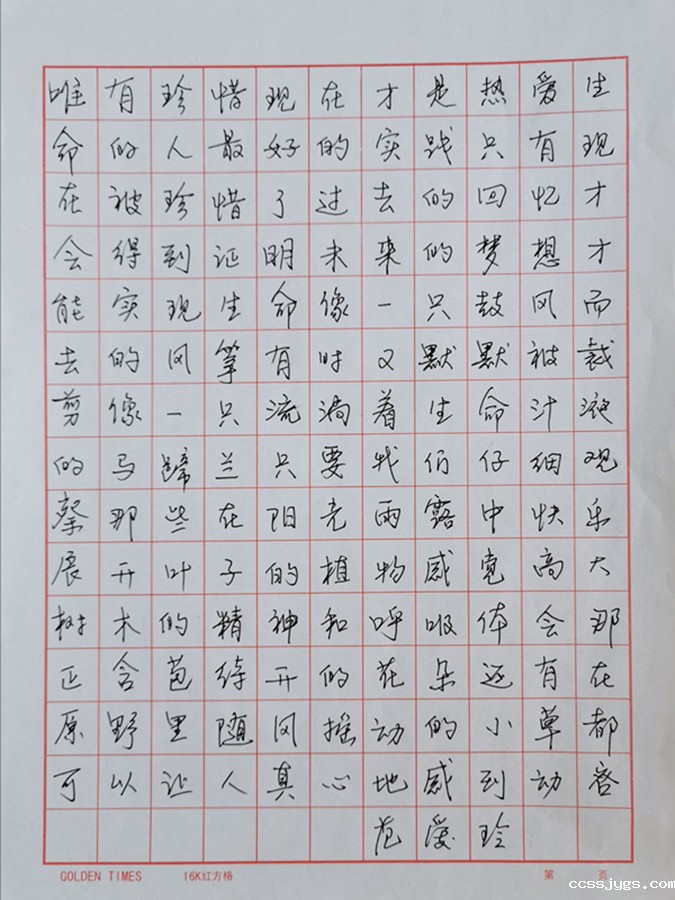 唯有珍惜现在才是热爱生
命的人最好的实践只有现
在被珍惜了过去的回忆才
会得到证明未来的梦想才
能实现生命像一只鼓风而
去的风筝有时又默默被裁
剪像一只流淌着生命汁液
的马蹄兰只要我们仔细观
察那些在阳光雨露中快乐
展开叶子的植物感觉高大
树木的精神和呼吸体会那
正含苞待开的花朵还有在
原野里随风摇动的小草都
可以让人真心地感到动容
范爱玲
GOLDEN TIMES 16K红方格 第 页
ccssjygs.com